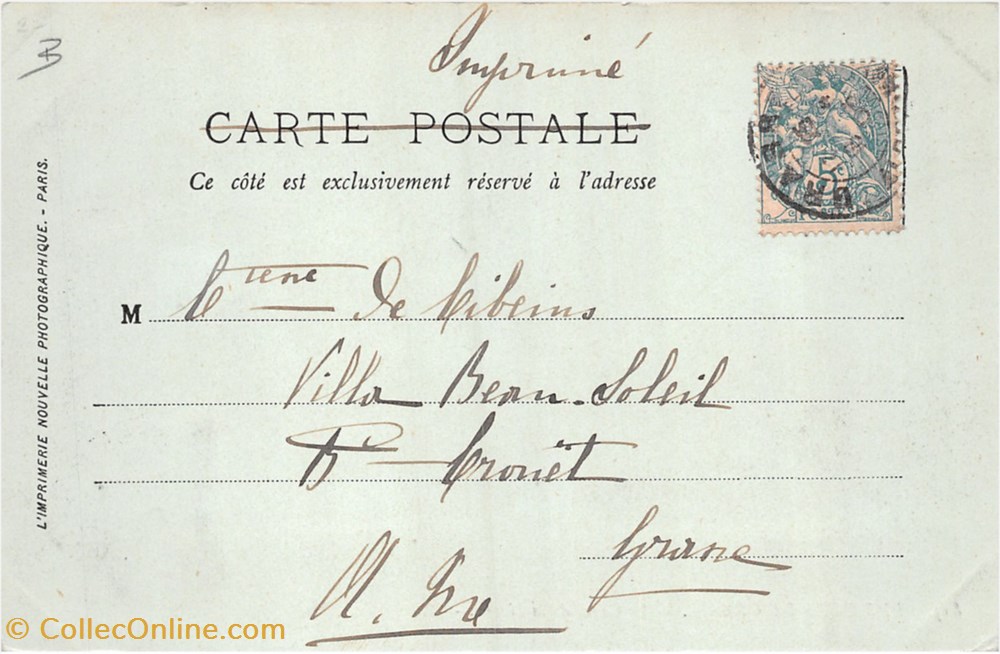 Imprimé
CARTE POSTALE
Ce côté est exclusivement réservé à l'adresse
5c
M
de Ribeins
Villa Beau-Soleil
Bd Crouët
Grasse
A. Me
L'IMPRIMERIE NOUVELLE PHOTOGRAPHIQUE. - PARIS.
© CollecOnline.com